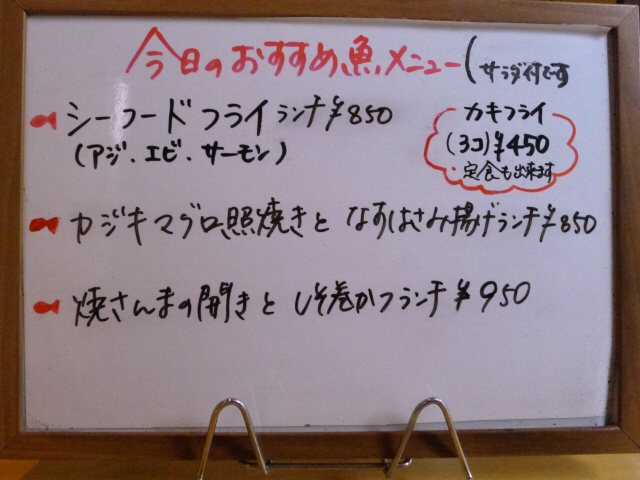 今日のおすすめ魚メニュー(サラダ付です
シーフードフライランチ¥850
(アジ、エビ、サーモン)
カキフライ
(3コ)¥450
定食も出来ます
カジキマグロ照焼きと なすはさみ揚げランチ¥850
焼さんまの開きと しそ巻かつランチ¥950